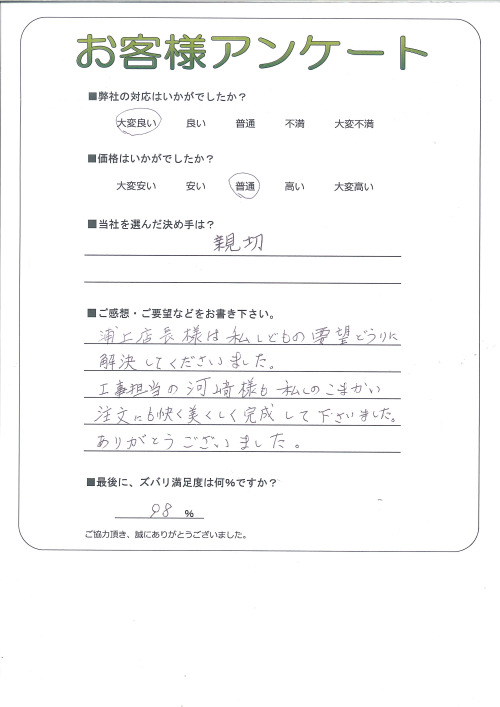 お客様アンケート
■弊社の対応はいかがでしたか？
大変良い 良い 普通 不満 大変不満
■価格はいかがでしたか？
大変安い 安い 普通 高い 大変高い
■当社を選んだ決め手は？
親切
■ご感想・ご要望などをお書き下さい。
浦上店長様は私しどもの要望どうりに
解決してくださいました。
工事担当の河崎様も私しのこまかい
注文にも快く美くしく完成して下さいました。
ありがとうございました。
■最後に、ズバリ満足度は何%ですか？
98 %
ご協力頂き、誠にありがとうございました。